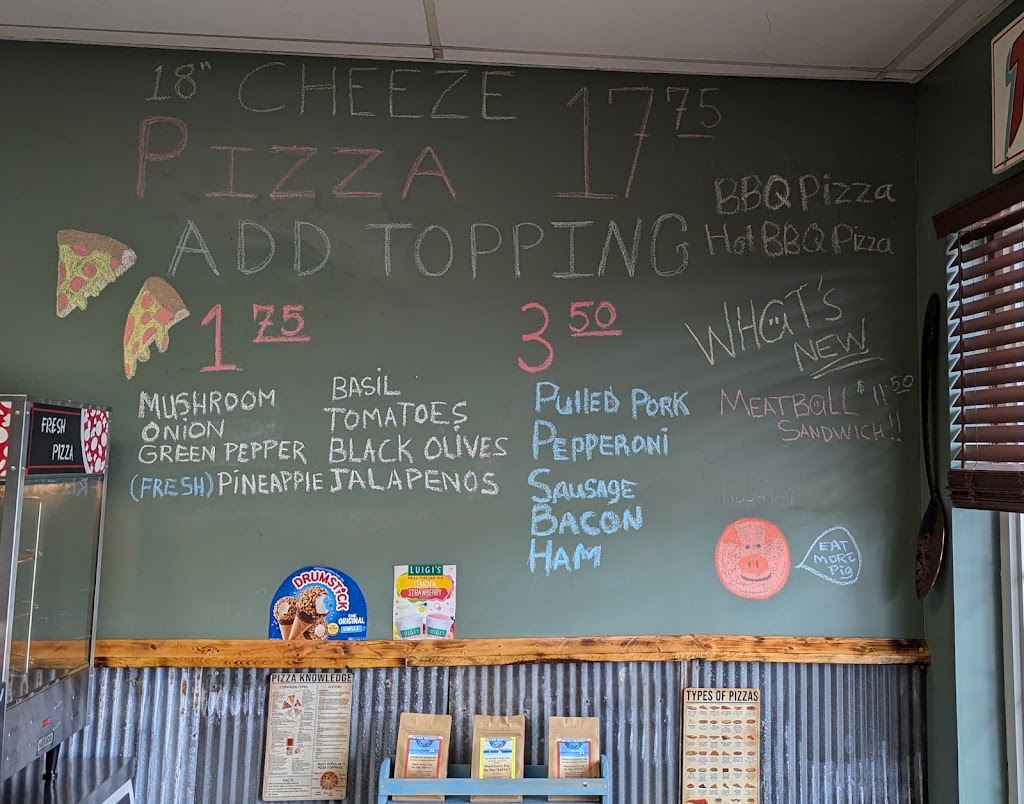 18" CHEEZE
PIZZA 17 75
ADD TOPPING
BBQ Pizza
Hot BBQ Pizza
1 75
MUSHROOM
ONION
GREEN PEPPER
(FRESH) PINEAPPlE
BASIL
TOMATOES
BLACK OLIVES
JALAPENOS
3 50
PUllED PORK
PEPPERONi
SAUSAGE
BACON
HAM
WHAT'S
NEW
MEATBALL $11.50
SANDWICH!!
EAT
MORE
PIG
FRESH
PIZZA
DRUMSTICK
THE
ORIGINAL
VANILLA
LUIGI'S
REAL ITALIAN ICE
LEMON &
STRAWBERRY
PIZZA KNOWLEDGE
FACTS
TYPES OF PIZZAS